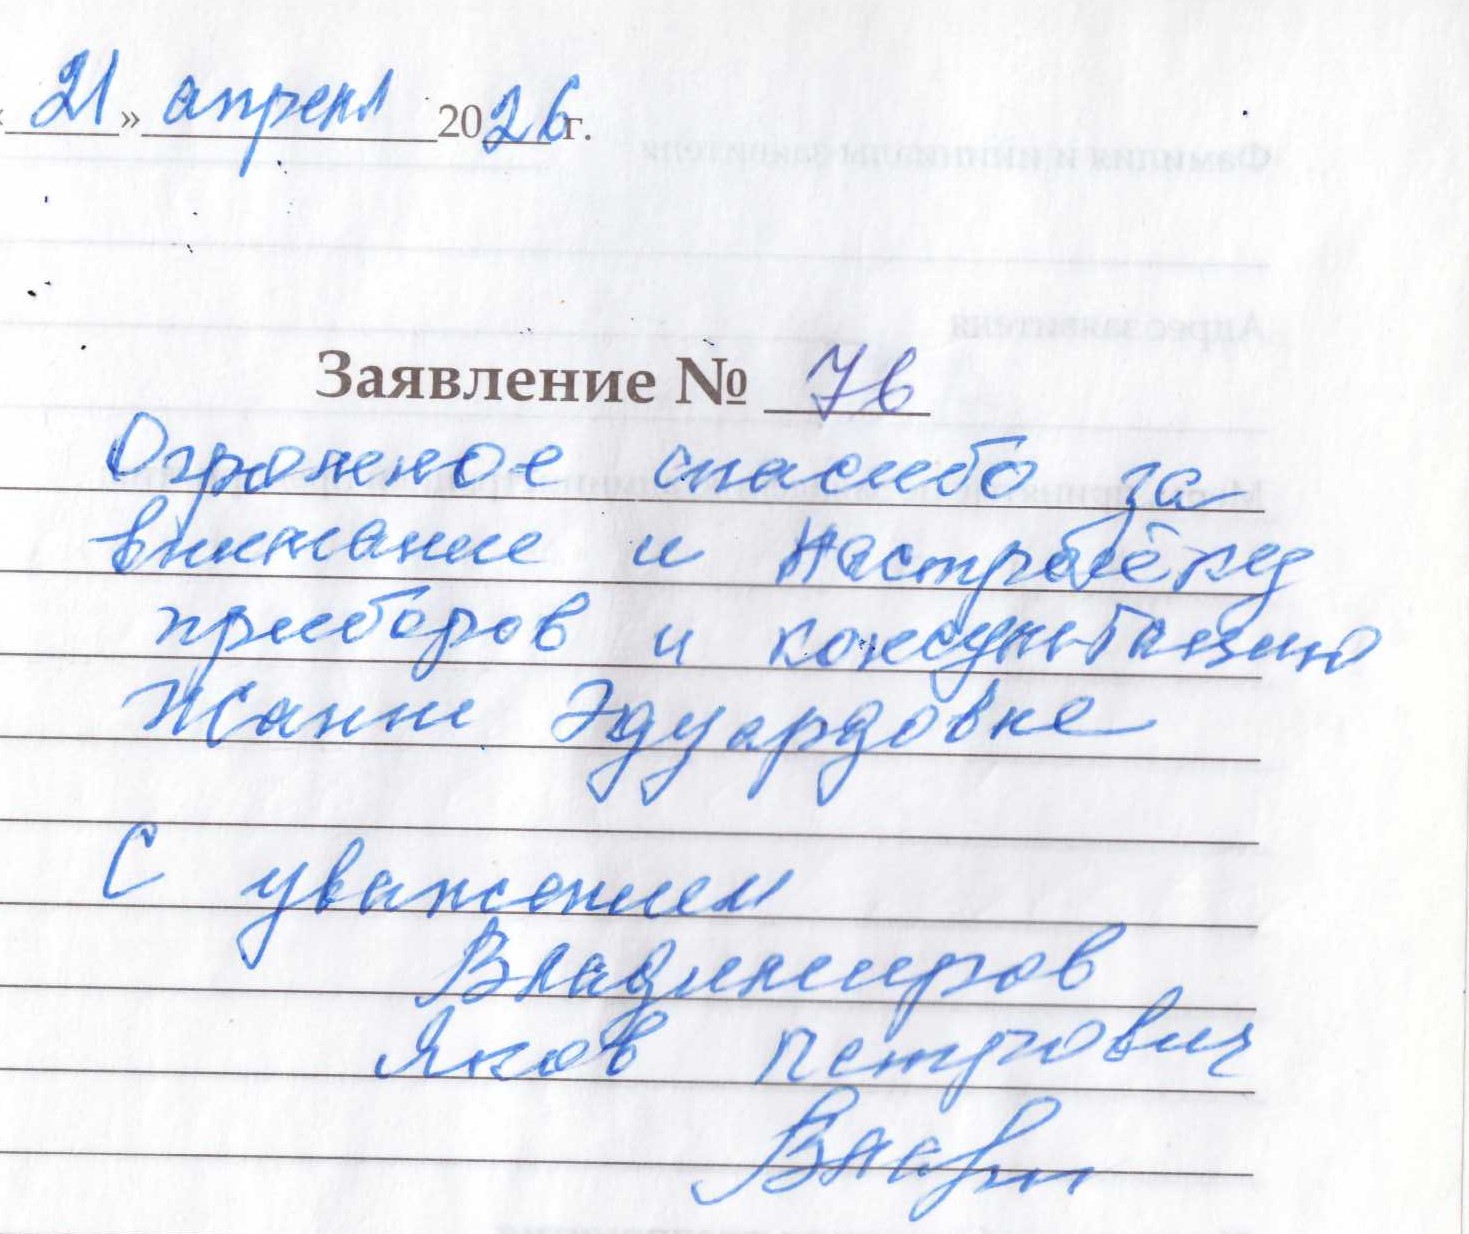 « 21 » апреля 2026 г.
Заявление № 76
Огромное спасибо за
внимание и
приборов и консультацию
Жанне Эдуардовне
С уважением
Владимиров
Яков Петрович